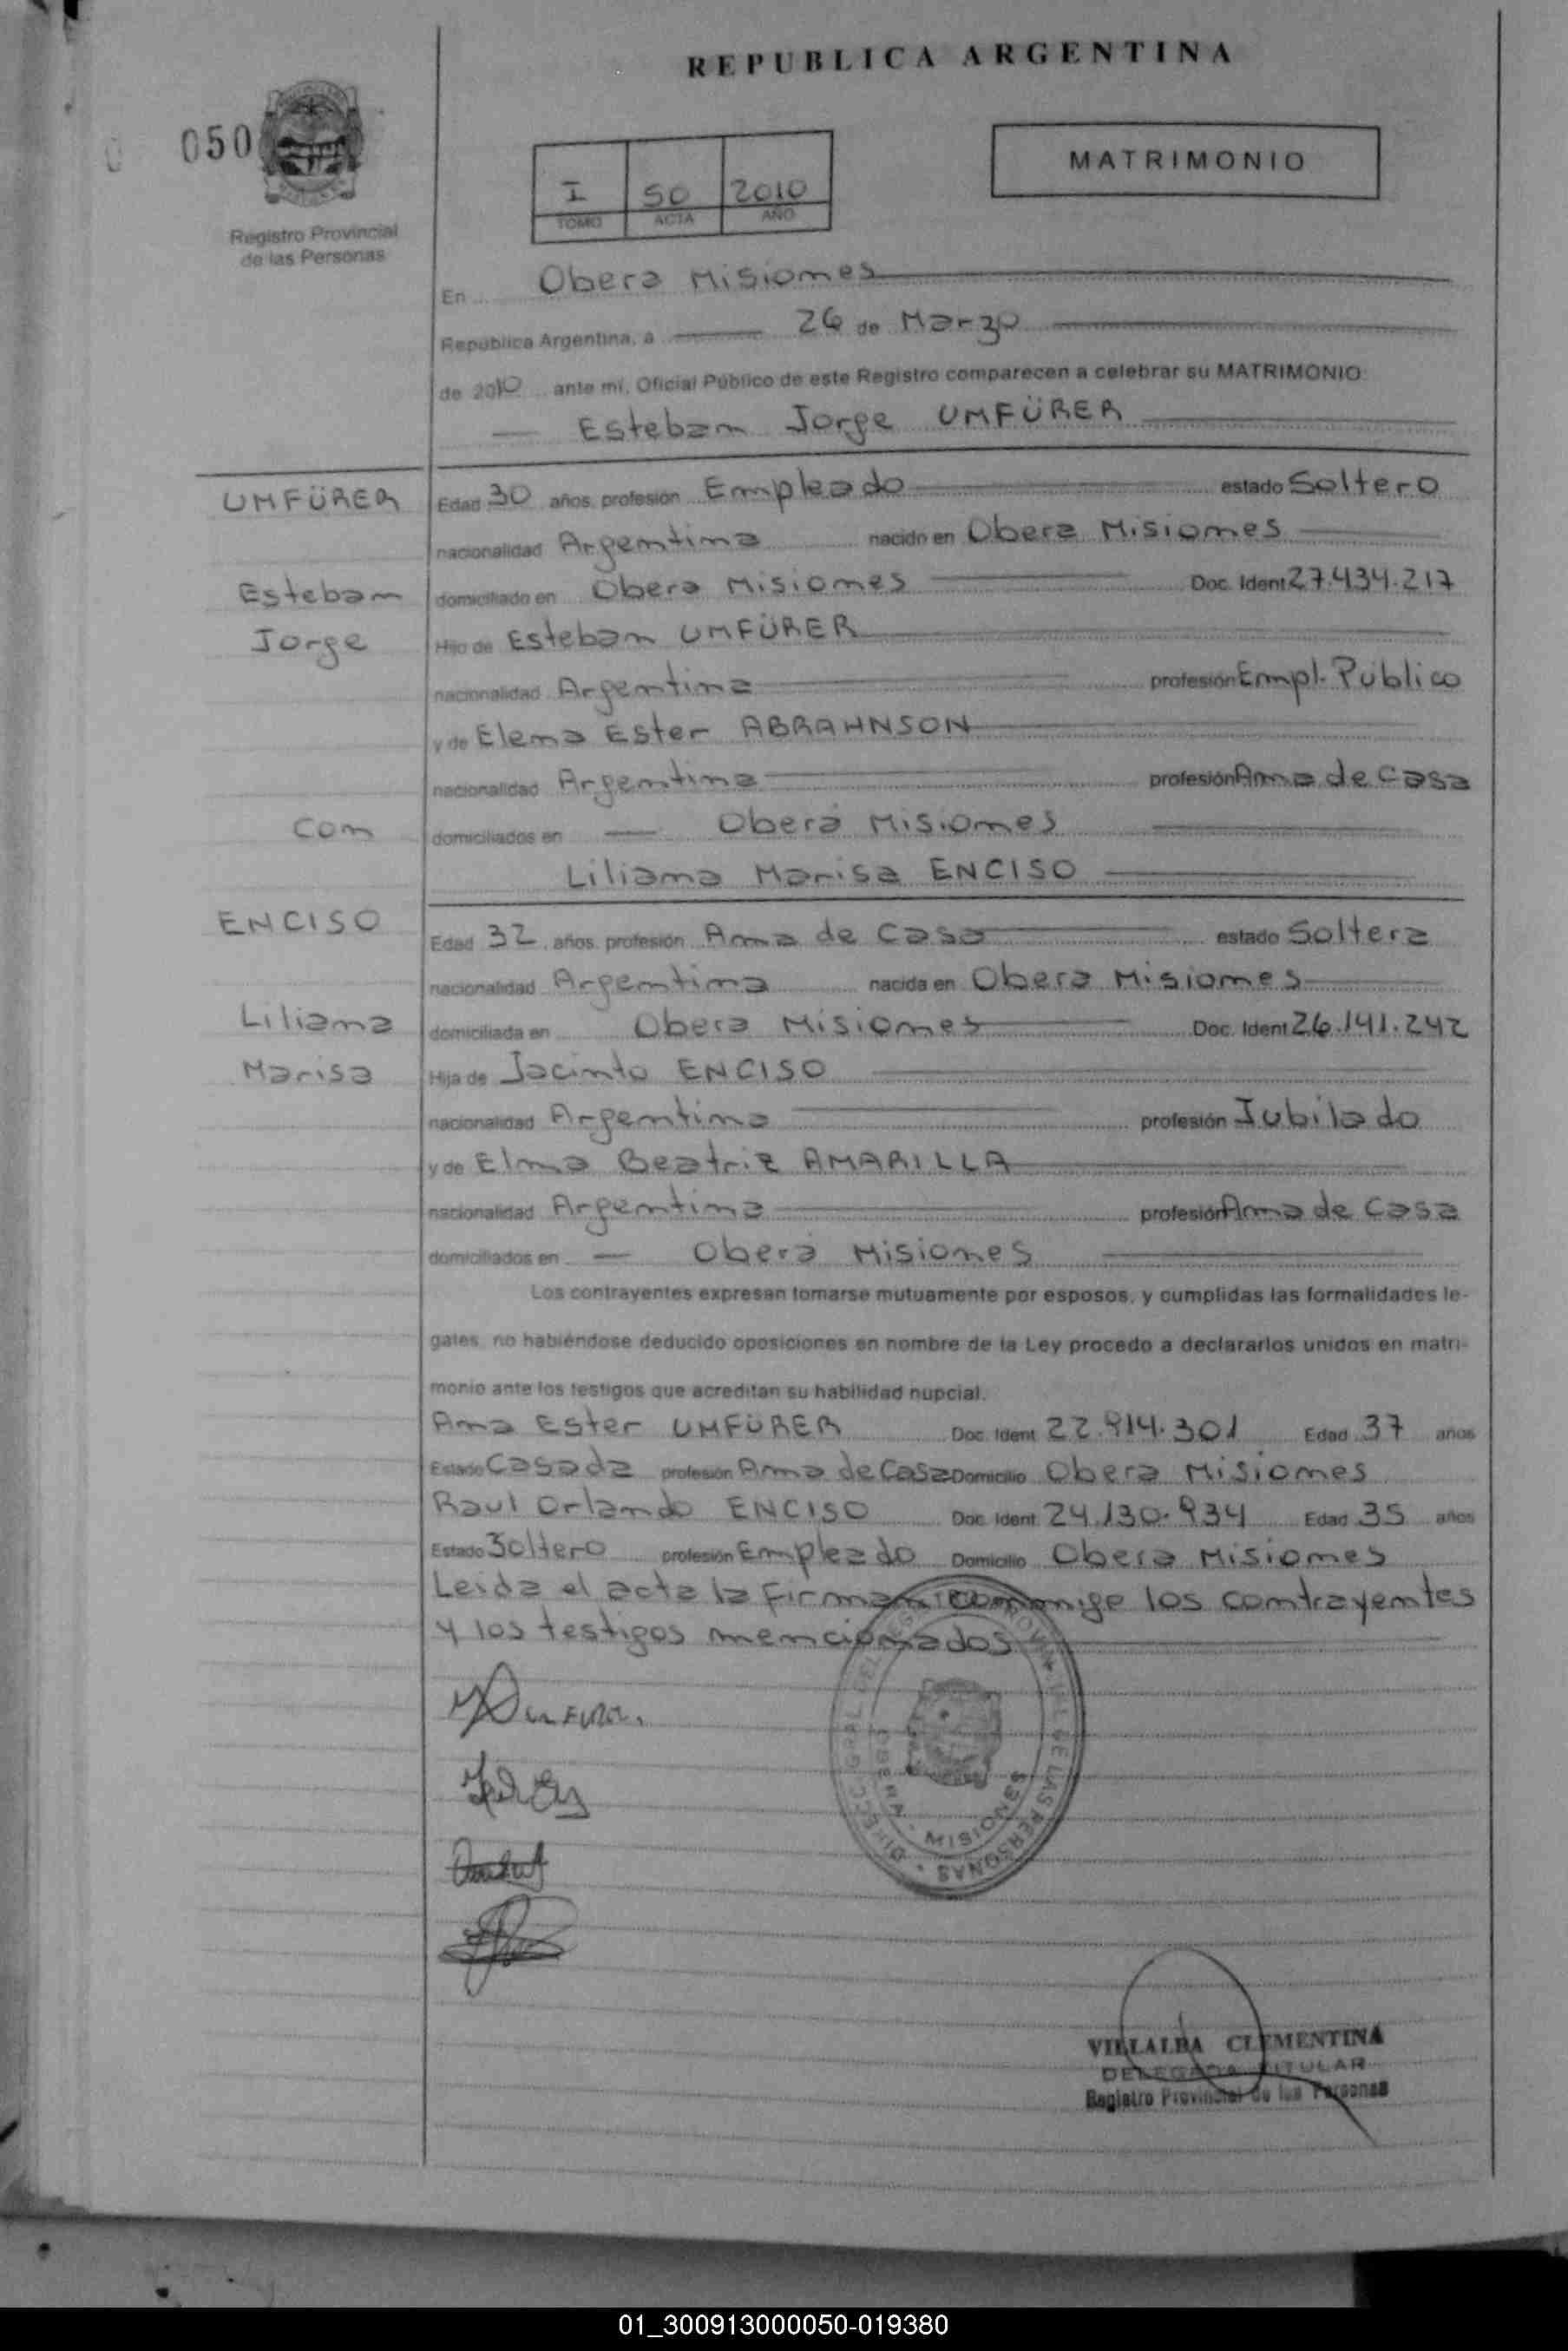 REPUBLICA ARGENTINA
050
MATRIMONIO
I 50 2010
TOMO ACTA AÑO
Registro Provincial
de las Personas
En Obera Misiones
República Argentina, a 26 de Marzo
de 2010 ante mí, Oficial Público de este Registro comparecen a celebrar su MATRIMONIO:
Esteban Jorge UMFÜRER
UMFÜRER
Edad 30 años, profesión Empleado estado Soltero
nacionalidad Argentina nacido en Obera Misiones
Esteban
domiciliado en Obera Misiones Doc. Ident 27.434.217
Jorge
Hijo de Esteban UMFÜRER
nacionalidad Argentina profesión Empl. Público
y de Elena Ester ABRAHNSON
nacionalidad Argentina profesión Ama de Casa
Con
domiciliados en Oberá Misiones
Liliana Marisa ENCISO
ENCISO
Edad 32 años, profesión Ama de Casa estado Soltera
nacionalidad Argentina nacida en Obera Misiones
Liliana
domiciliada en Obera Misiones Doc. Ident 26.141.242
Marisa
Hija de Jacinto ENCISO
nacionalidad Argentina profesión Jubilado
y de Elma Beatriz AMARILLA
nacionalidad Argentina profesión Ama de Casa
domiciliados en Oberá Misiones
Los contrayentes expresan tomarse mutuamente por esposos, y cumplidas las formalidades le-
gales, no habiéndose deducido oposiciones en nombre de la Ley procedo a declararlos unidos en matri-
monio ante los testigos que acreditan su habilidad nupcial.
Ana Ester UMFÜRER Doc. Ident. 22.914.301 Edad 37 años
Estado Casada profesión Ama de Casa Domicilio Obera Misiones
Raul Orlando ENCISO Doc. Ident. 24.130.934 Edad 35 años
Estado Soltero profesión Empleado Domicilio Obera Misiones
Leida el acta la firman conmigo los contrayentes
y los testigos mencionados
DE LAS PERSONAS
OBERA - MISIONES
VILLALBA CLEMENTINA
DELEGADA TITULAR
Registro Provincial de las Personas
01_300913000050-019380